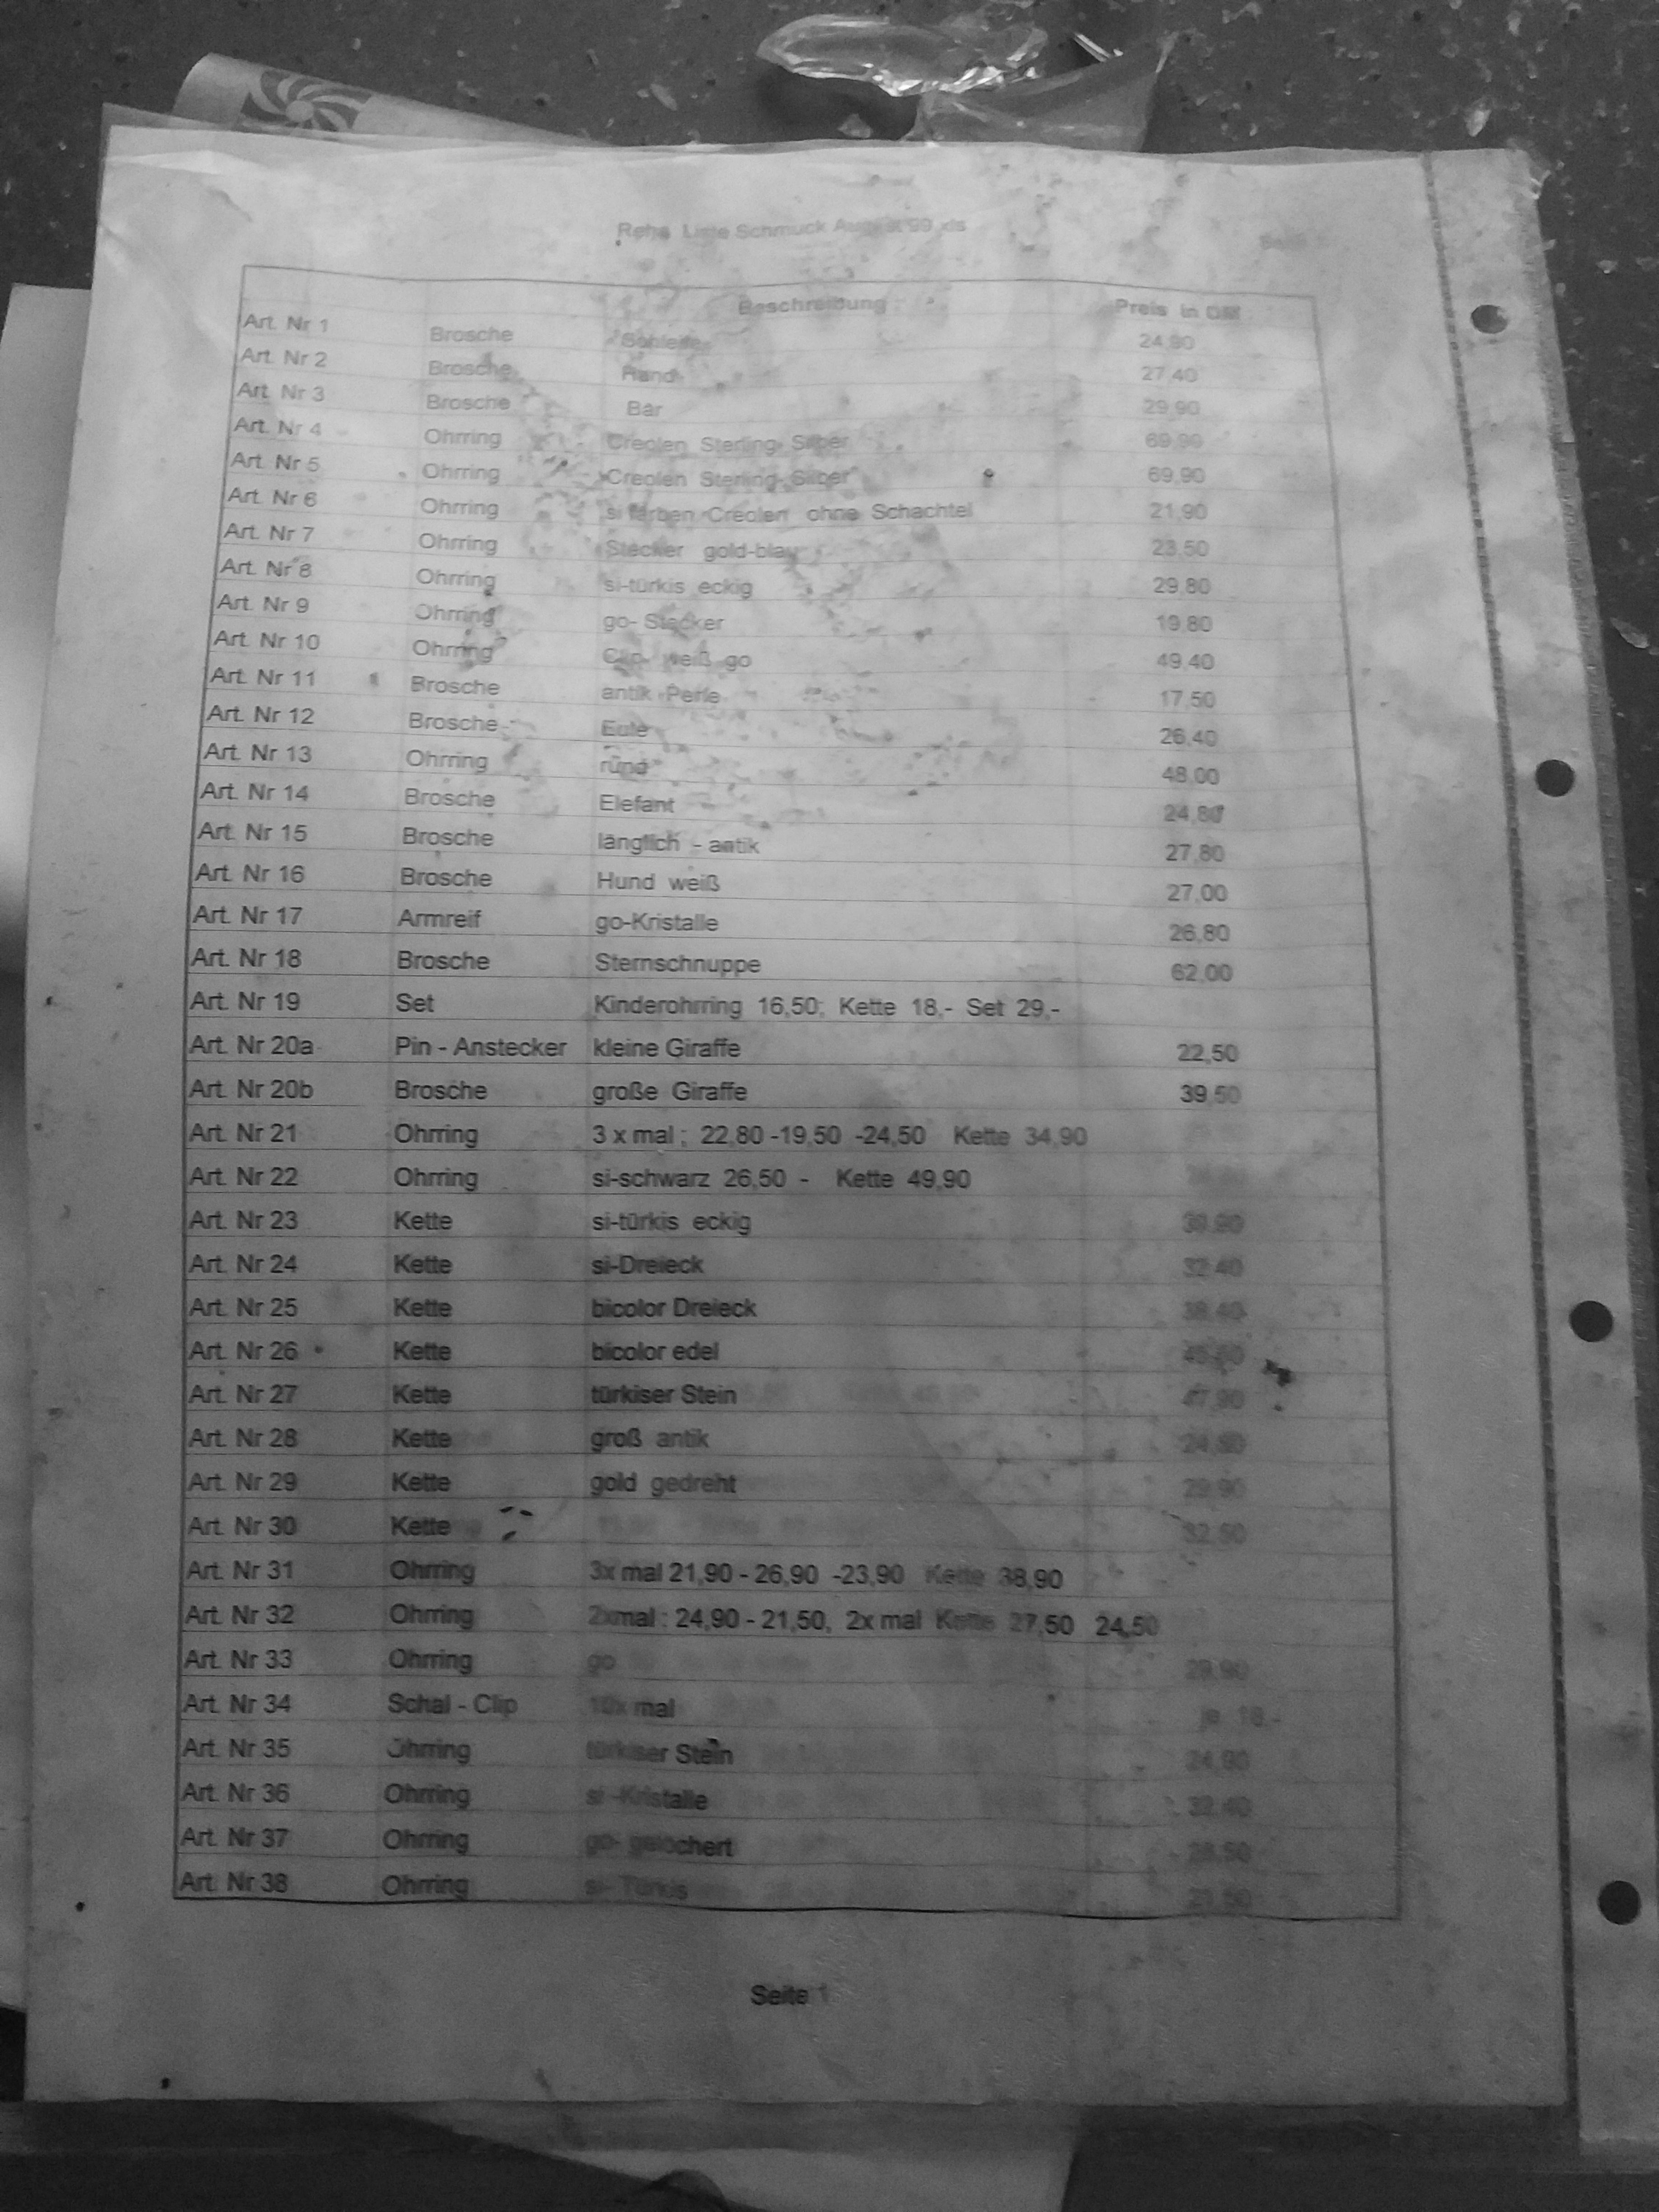 Reha Liste Schmuck August 99.xls
Beschreibung Preis in DM
Art. Nr 1 Brosche Schleife 24,80
Art. Nr 2 Brosche 27,40
Art. Nr 3 Brosche Bär 29,90
Art. Nr 4 Ohrring Creolen Sterling- Silber 69,90
Art. Nr 5 Ohrring Creolen Sterling- Silber 69,90
Art. Nr 6 Ohrring si farben Creolen ohne Schachtel 21,90
Art. Nr 7 Ohrring Stecker gold-blau 23,50
Art. Nr 8 Ohrring si-türkis eckig 29,80
Art. Nr 9 Ohrring go- Stecker 19,80
Art. Nr 10 Ohrring Clip- weiß go 49,40
Art. Nr 11 Brosche antik Perle 17,50
Art. Nr 12 Brosche Eule 26,40
Art. Nr 13 Ohrring rund 48,00
Art. Nr 14 Brosche Elefant 24,80
Art. Nr 15 Brosche länglich - antik 27,80
Art. Nr 16 Brosche Hund weiß 27,00
Art. Nr 17 Armreif go-Kristalle 26,80
Art. Nr 18 Brosche Sternschnuppe 62,00
Art. Nr 19 Set Kinderohrring 16,50; Kette 18,- Set 29,-
Art. Nr 20a Pin - Anstecker kleine Giraffe 22,50
Art. Nr 20b Brosche große Giraffe 39,50
Art. Nr 21 Ohrring 3 x mal ; 22,80 -19,50 -24,50 Kette 34,90
Art. Nr 22 Ohrring si-schwarz 26,50 - Kette 49,90
Art. Nr 23 Kette si-türkis eckig
Art. Nr 24 Kette si-Dreieck 32,40
Art. Nr 25 Kette bicolor Dreieck
Art. Nr 26 Kette bicolor edel
Art. Nr 27 Kette türkiser Stein 47,90
Art. Nr 28 Kette groß antik
Art. Nr 29 Kette gold gedreht
Art. Nr 30 Kette 32,50
Art. Nr 31 Ohrring 3x mal 21,90 - 26,90 -23,90 Kette 38,90
Art. Nr 32 Ohrring 2xmal : 24,90 - 21,50, 2x mal Kette 27,50 24,50
Art. Nr 33 Ohrring go
Art. Nr 34 Schal - Clip 10x mal je 18,-
Art. Nr 35 Ohrring türkiser Stein 24,90
Art. Nr 36 Ohrring si -Kristalle 32,40
Art. Nr 37 Ohrring go- gelöchert
Art. Nr 38 Ohrring si- Türkis
Seite 1